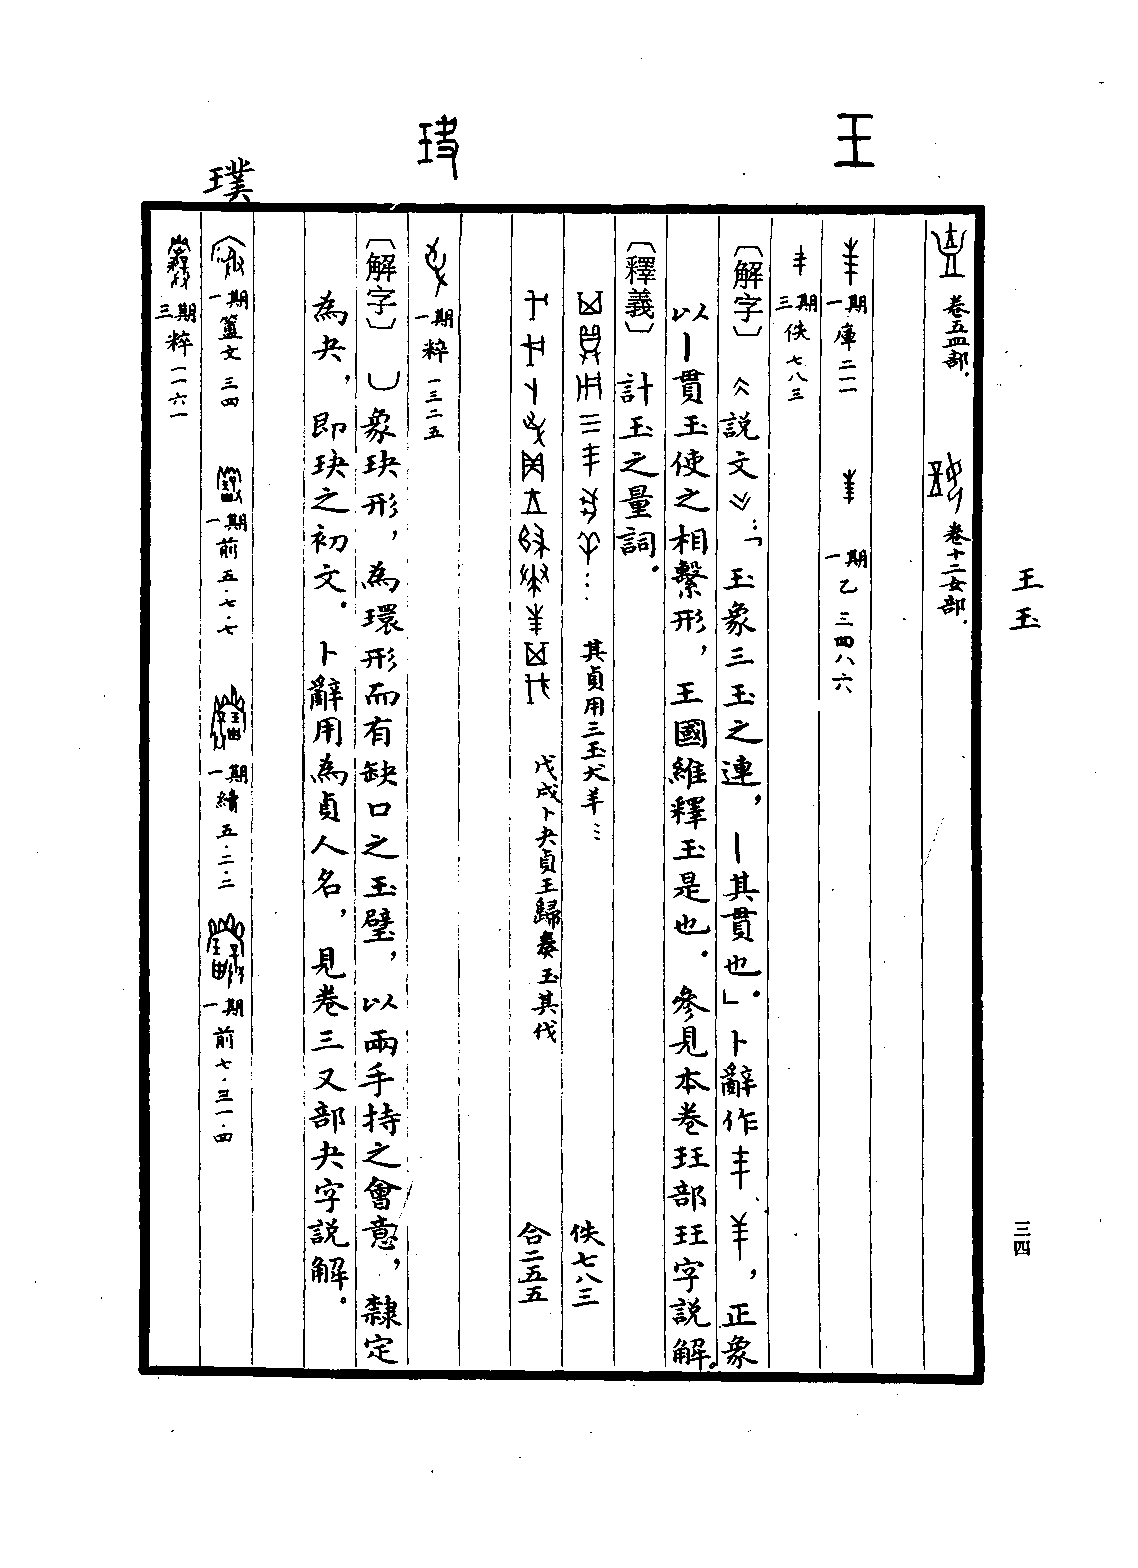 王玉
三四
王
卷五皿部.
卷十二女部.
一期 庫二一一
一期 乙三四八六
三期 佚七八三
〔解字〕《說文》：「玉象三玉之連，丨其貫也」.卜辭作丰，正象
以丨貫玉使之相繫形，王國維釋玉是也.參見本卷玨部玨字說解。
〔釋義〕計玉之量詞.
其貞用三玉犬羊… 佚七八三
戊戌卜夬貞王歸奏玉其伐 合二五五
玦
一期 粹一三二五
〔解字〕象玦形，為環形而有缺口之玉璧，以兩手持之會意，隸定
為夬，即玦之初文.卜辭用為貞人名，見卷三又部夬字說解。
璞
一期 簠文三四
一期 前五·七·七
一期 續五·二·二
一期 前七·三一·四
三期 粹一一六一